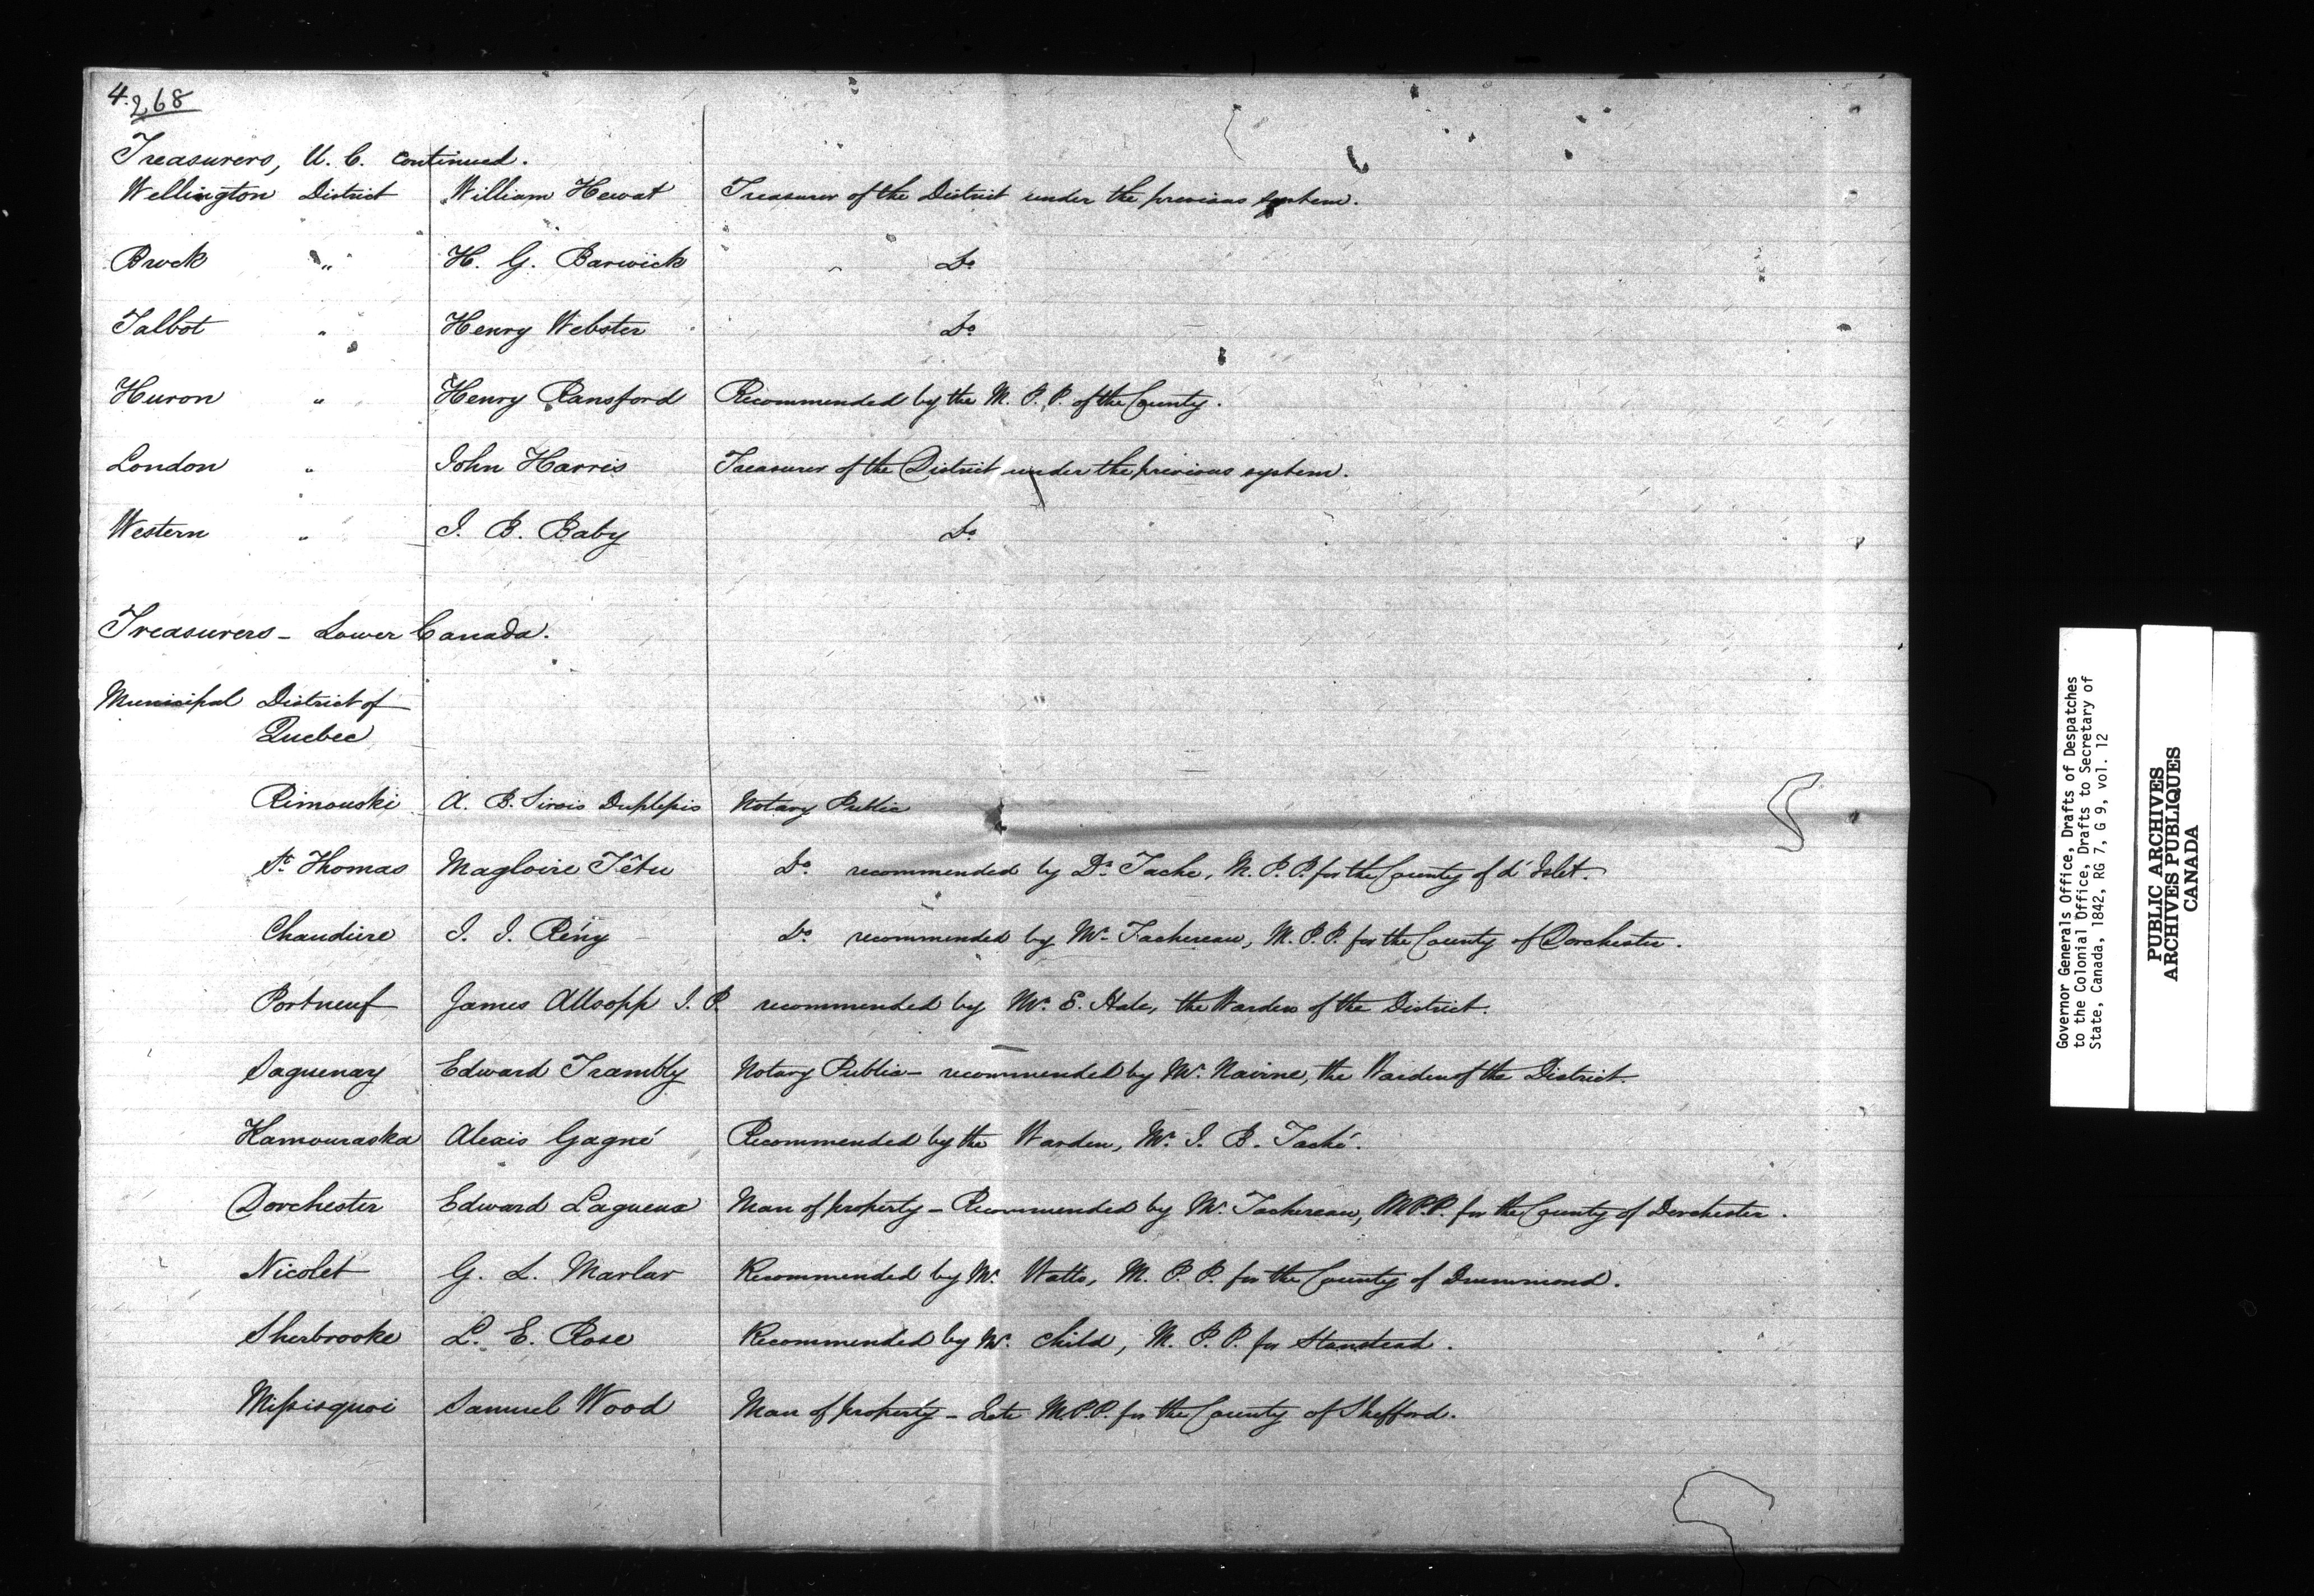 4.
268
Treasurers, U. C. continued.
Wellington District William Hewat Treasurer of the District under the previous system.
Brock " H. G. Barwick Do
Talbot " Henry Webster Do
Huron " Henry Ransford Recommended by the M. P. P. of the County.
London " John Harris Treasurer of the District under the previous system.
Western " J. B. Baby Do
Treasurers - Lower Canada.
Municipal District of
Quebec
Rimouski A. B. Sirois Duplessis Notary Public
St. Thomas Magloire Têtu Do. recommended by Dr. Tache, M. P. P. for the County of d'Islet.
Chaudiere J. J. Rény Do. recommended by Mr. Tachereau, M. P. P. for the County of Dorchester.
Portneuf James Allsopp J. P. recommended by Mr. E. Hale, the Warden of the District.
Saguenay Edward Trambly Notary Public - recommended by Mr. the Warden of the District.
Kamouraska Alexis Gagné Recommended by the Warden, Mr. J. B. Taché.
Dorchester Edward Lagueux Man of property - Recommended by Mr. Tachereau, M.P.P. for the County of Dorchester.
Nicolet G. L. Marlar Recommended by Mr. Watts, M. P. P. for the County of Drummond.
Sherbrooke L. E. Rose Recommended by Mr. Child, M. P. P. for Stanstead.
Missisquoi Samuel Wood Man of property - Late M.P.P. for the County of Shefford.
Governor Generals Office, Drafts of Despatches
to the Colonial Office, Drafts to Secretary of
State, Canada, 1842, RG 7, G 9, vol. 12
PUBLIC ARCHIVES
ARCHIVES PUBLIQUES
CANADA